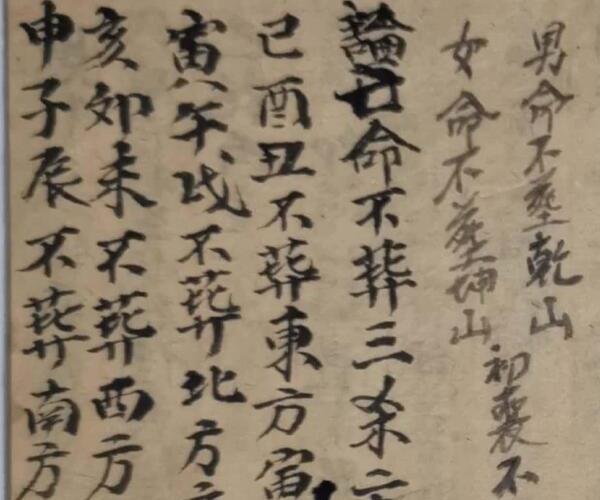 男命不葬乾山
女命不葬坤山
初喪不
論亡命不葬三杀
已酉丑不葬東方寅
寅午戌不葬北方
亥卯未不葬西方
申子辰不葬南方